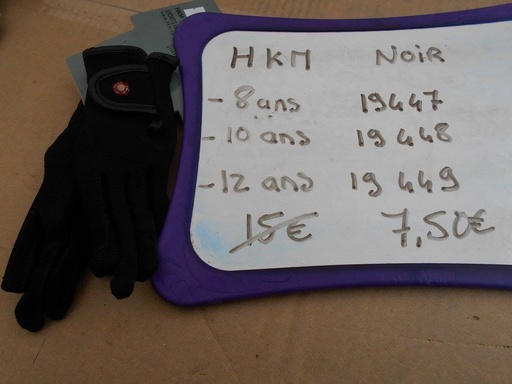 HKM NOIR
- 8 ans 19447
- 10 ans 19448
- 12 ans 19449
15€ 7,50€